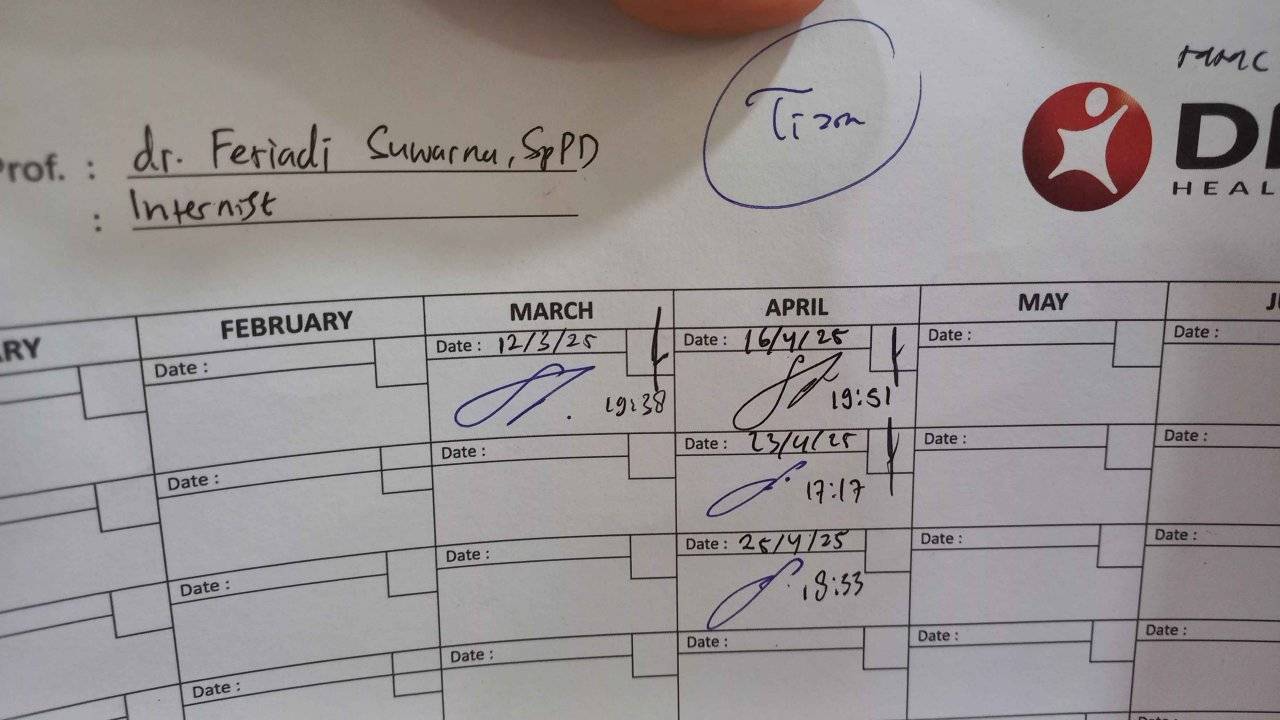 MMC
Tizon
Prof. : dr. Feriadi Suwarna, SpPD
: Internist
HEAL
ARY FEBRUARY MARCH APRIL MAY
Date : Date : 12/3/25 Date : 16/4/25 Date : Date :
19:38 19:51
Date : Date : Date : 23/4/25 Date : Date :
17:17
Date : Date : Date : 25/4/25 Date : Date :
18:33
Date : Date : Date : Date : Date :
Date :